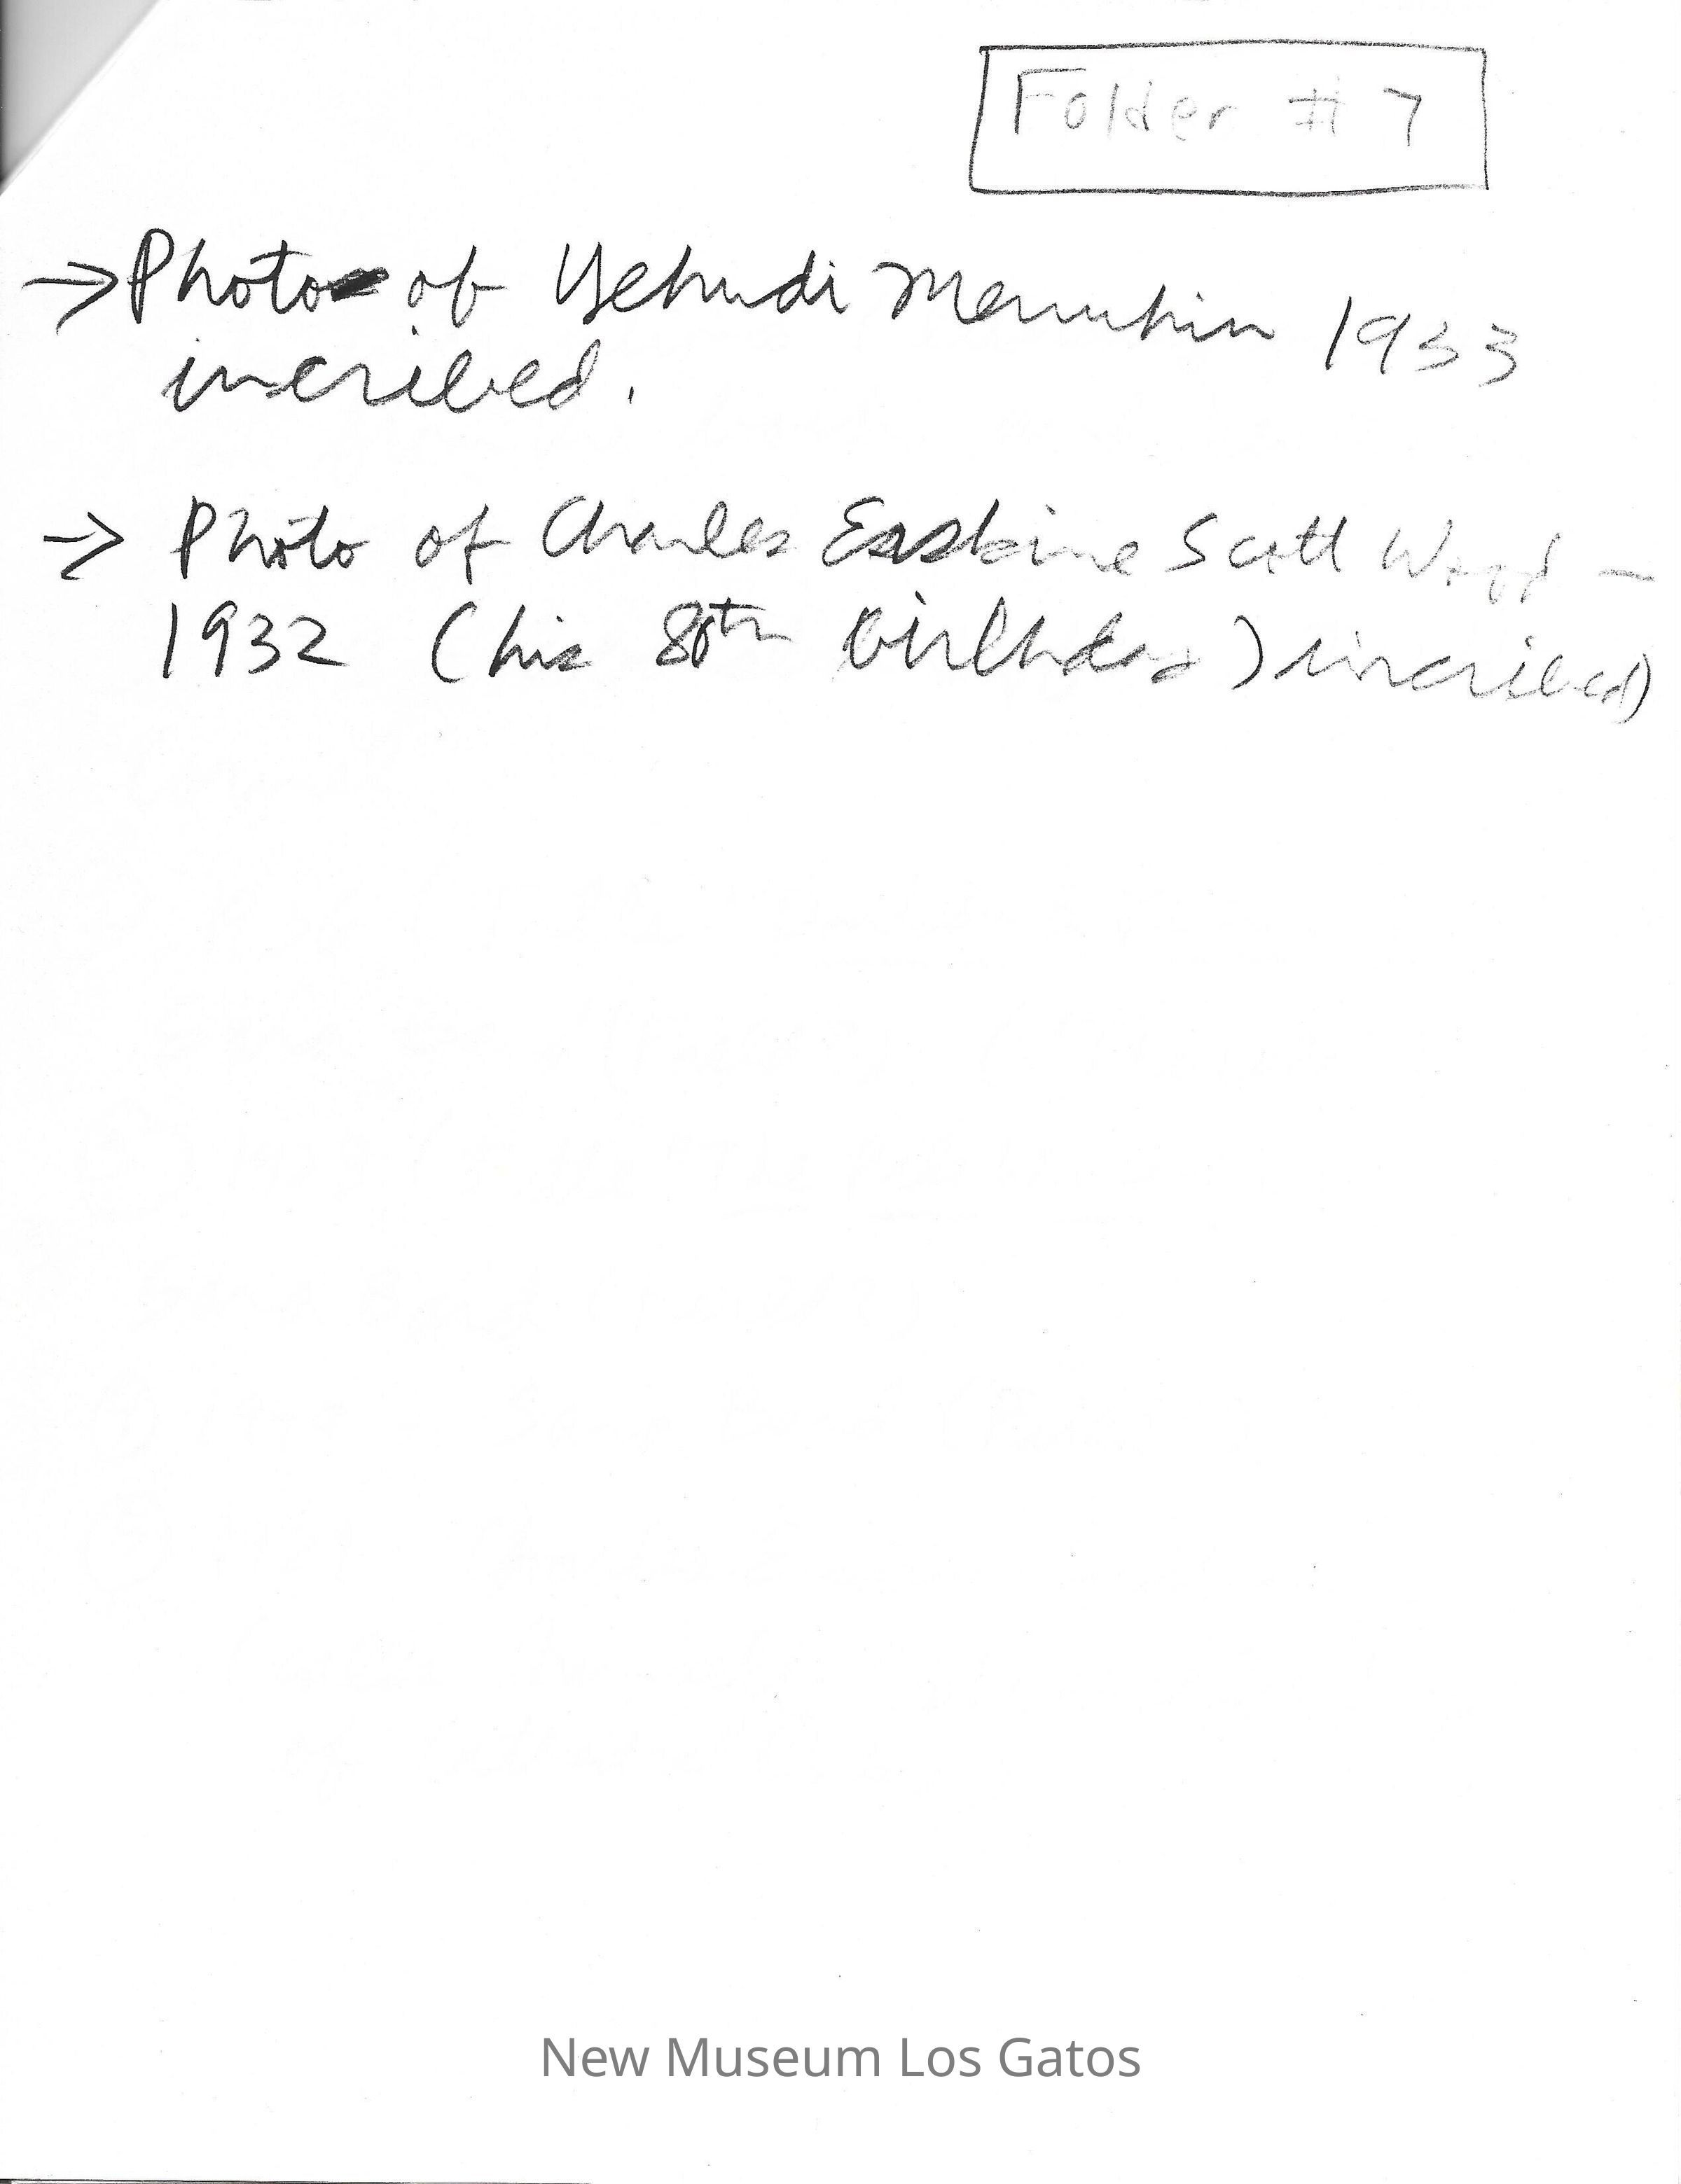 Folder # 7
→ Photo of Yehudi Menuhin 1933
incribed.
→ Photo of Charles Erskine Scott Wood –
1932 (his 80th birthday) incribed)
New Museum Los Gatos